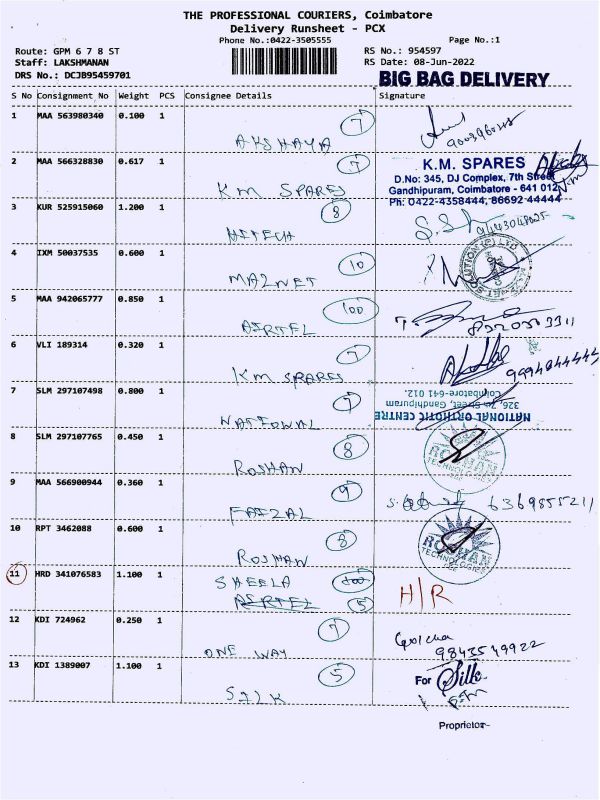 THE PROFESSIONAL COURIERS, Coimbatore
Delivery Runsheet - PCX
Phone No.:0422-3505555
Page No.:1
Route: GPM 6 7 8 ST
RS No.: 954597
Staff: LAKSHMANAN
RS Date: 08-Jun-2022
DRS No.: DCJB95459701
BIG BAG DELIVERY
S No Consignment No Weight PCS Consignee Details Signature
1 MAA 563980340 0.100 1 7
AKSHAYA
2 MAA 566328830 0.617 1 7
KM SPARES
K.M. SPARES
D.No: 345, DJ Complex, 7th Street
Gandhipuram, Coimbatore - 641 012
Ph: 0422-4358444, 86692 44444
3 KUR 525915060 1.200 1 8
HITECH
4 IXM 50037535 0.600 1 10
MAZNET
5 MAA 942065777 0.850 1 100
AIRTEL
6 VLI 189314 0.320 1 7
KM SPARES
9994044444
7 SLM 297107498 0.800 1 7
NATIONAL
NATIONAL ORTHOTIC CENTRE
326, 7th Street, Gandhipuram
Coimbatore-641 012.
8 SLM 297107765 0.450 1 8
ROSHAN
ROSHAN
TECHNOLOGIES
9 MAA 566900944 0.360 1 9
FAIZAL
6369855211
10 RPT 3462088 0.600 1 8
ROSHAN
ROSHAN
TECHNOLOGIES
11 HRD 341076583 1.100 1 SHEELA 100
AIRTEL 5
H/R
12 KDI 724962 0.250 1 7
ONE WAY
9843549922
13 KDI 1389007 1.100 1 5
SILK
For Silk
Proprietor